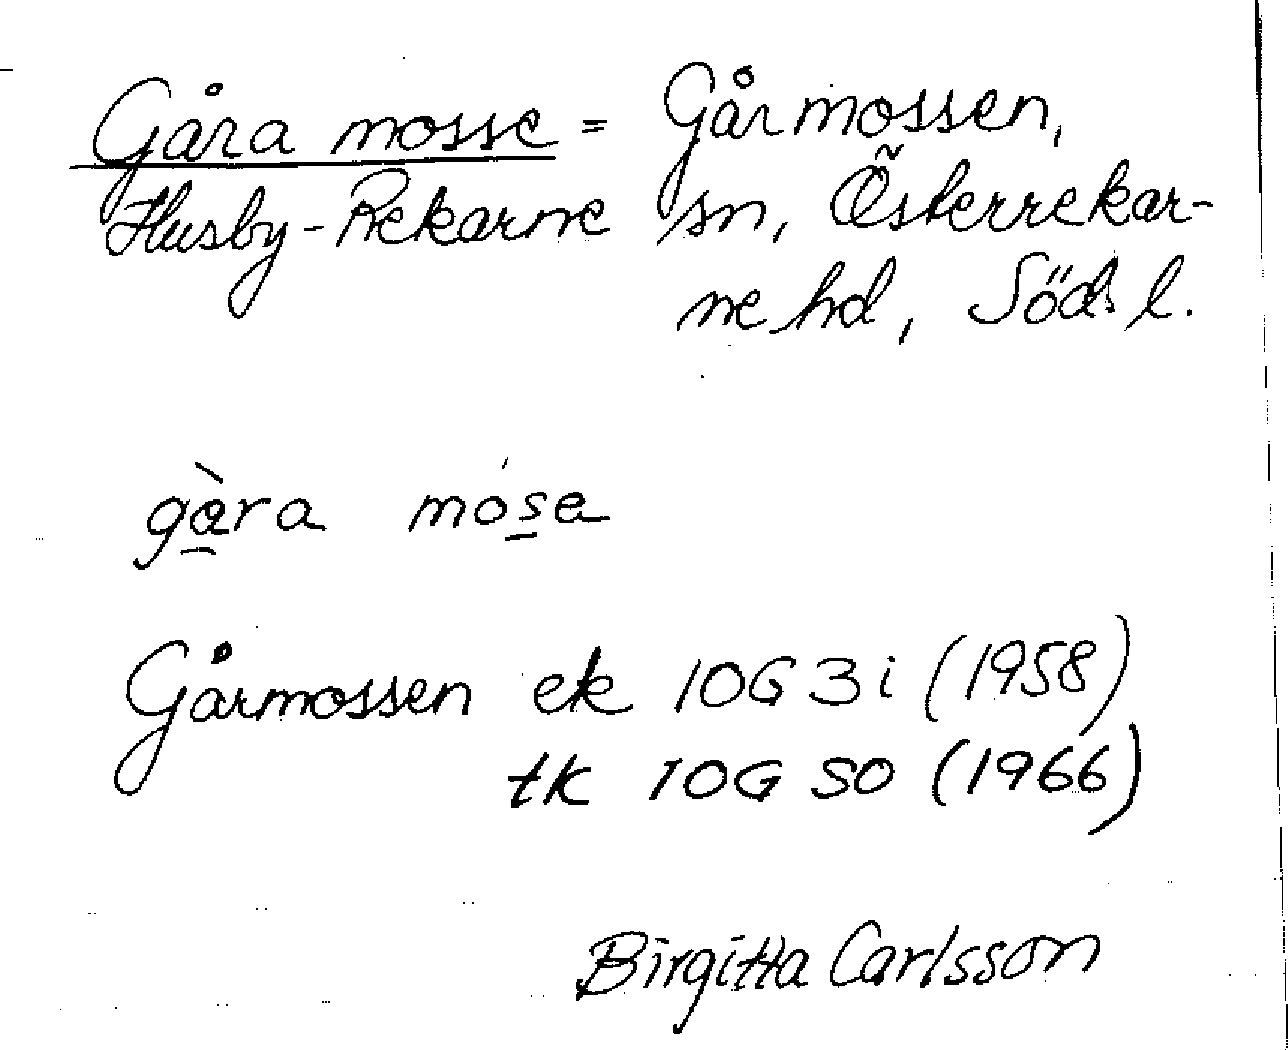 Gåra mosse = Gårmossen,
Husby-Rekarne sn, Österrekar-
ne hd, Söd. l.
gàra móse
Gårmossen ek 10G 3i (1958)
tk 10G SO (1966)
Birgitta Carlsson